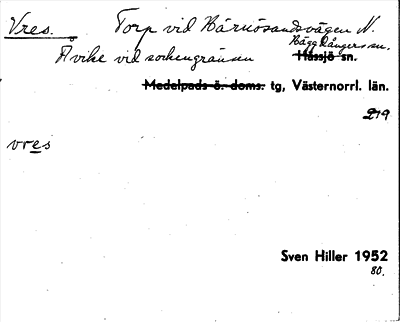 Vres. Torp vid Härnösandsvägen N.
Häggdångers sn.
Åvike vid sockengränsen Hässjö sn.
Medelpads ö. doms. tg, Västernorrl. län.
219
vres
Sven Hiller 1952
80.